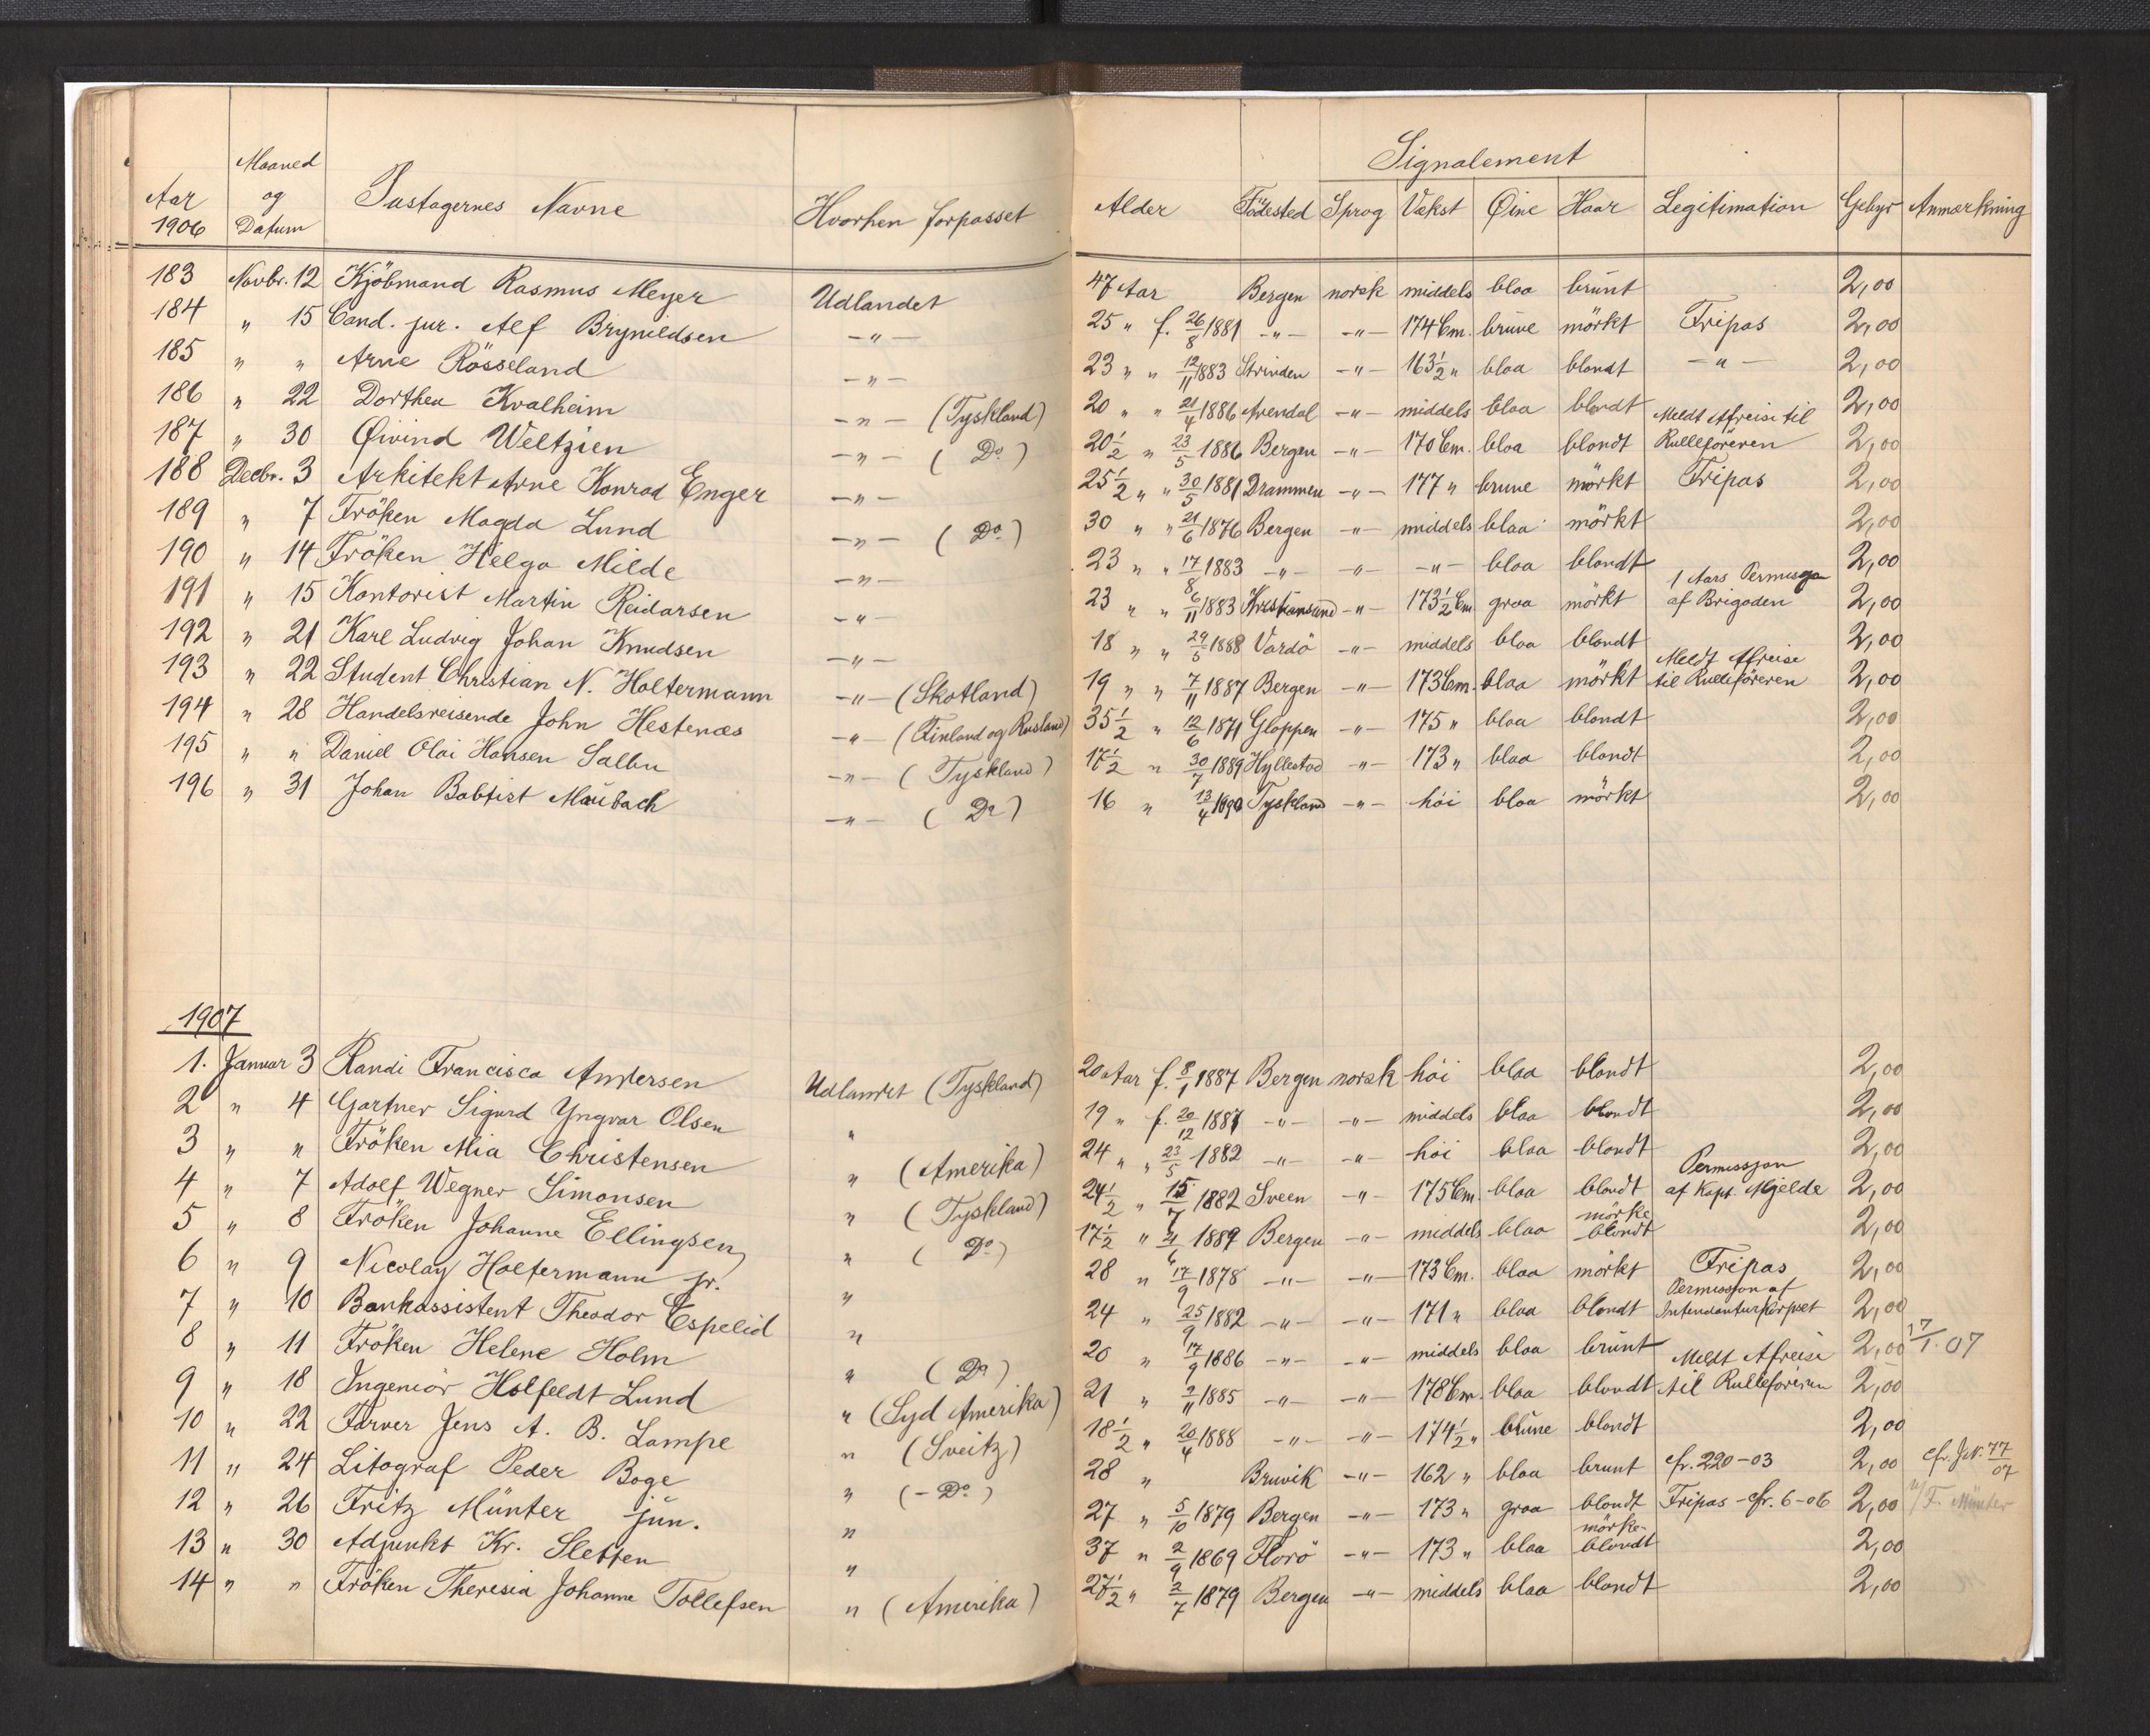 Signalement
Aar 1906 Maaned og Datum Pastagernes Navne Hvorhen forpasset Alder Födested Sprog Vækst Øine Haar Legitimation Gebyr Anmærkning
183 Novbr. 12 Kjöbmand Rasmus Meyer Udlandet 47 Aar Bergen norsk middels blaa brunt 2,00
184 " 15 Cand. jur. Alf Brynildsen -"- 25 " f. 26/8 1881 -"- -"- 174 Cm. brune mörkt Fripas 2,00
185 " " Arne Rösseland -"- 23 " " 12/11 1883 Strinden -"- 163½ " blaa blondt -"- 2,00
186 " 22 Dorthea Kvalheim -"- (Tyskland) 20 " " 21/4 1886 Arendal -"- middels blaa blondt 2,00
187 " 30 Øivind Weltzien -"- ( Do ) 20½ " 23/5 1886 Bergen -"- 170 Cm. blaa blondt Meldt Afreise til Rulleföreren 2,00
188 Decbr. 3 Arkitekt Arne Konrad Enger -"- 25½ " " 30/5 1881 Drammen -"- 177 " brune mörkt Fripas 2,00
189 " 7 Fröken Magda Lund -"- ( Do ) 30 " " 21/6 1876 Bergen -"- middels blaa mörkt 2,00
190 " 14 Fröken Helga Milde -"- 23 " " 17/8 1883 -"- -"- -"- blaa blondt 2,00
191 " 15 Kontorist Martin Reidarsen -"- 23 " " 6/11 1883 Kristiansund -"- 173½ Cm graa mörkt 1 Aars Permisjon af Brigaden 2,00
192 " 21 Karl Ludvig Johan Knudsen -"- 18 " " 29/5 1888 Vardö -"- middels blaa blondt 2,00
193 " 22 Student Christian N. Holtermann -"- (Skotland) 19 " " 7/11 1887 Bergen -"- 173 Cm. blaa mörkt Meldt Afreise til Rulleföreren 2,00
194 " 28 Handelsreisende John Hestenæs -"- (Finland og Rusland) 35½ " 12/6 1871 Gloppen -"- 175 " blaa blondt 2,00
195 " " Daniel Olai Hansen Salbu -"- ( Tyskland ) 17½ " 30/7 1889 Hyllestad -"- 173 " blaa blondt 2,00
196 " 31 Johan Babtist Maubach -"- ( Do ) 16 " 13/4 1890 Tyskland -"- höi blaa mörkt 2,00
1907
1. Januar 3 Randi Francisca Andersen Udlandet (Tyskland) 20 Aar f. 8/1 1887 Bergen norsk höi blaa blondt 2,00
2 " 4 Gartner Sigurd Yngvar Olsen " 19 " f. 20/12 1887 -"- -"- middels blaa blondt 2,00
3 " " Fröken Mia Christensen " (Amerika) 24 " " 23/5 1882 -"- -"- höi blaa blondt 2,00
4 " 7 Adolf Wegner Simonsen " (Tyskland) 24½ " 15/7 1882 Sveen -"- 175 Cm. blaa blondt Permissjon af Kapt. Mjelde 2,00
5 " 8 Fröken Johanne Ellingsen " ( Do ) 17½ " 4/6 1889 Bergen -"- middels blaa mörke blondt 2,00
6 " 9 Nicolay Holtermann jr. " 28 " 17/9 1878 -"- -"- 173 Cm. blaa mörkt Fripas 2,00
7 " 10 Bankassistent Theodor Espelid " 24 " 25/9 1882 -"- -"- 171 " blaa blondt Permissjon af Intendanturkorpset 2,00
8 " 11 Fröken Helene Holm " ( Do ) 20 " 17/9 1886 -"- -"- middels blaa brunt 2,00 17/1. 07
9 " 18 Ingeniör Holfeldt Lund " (Syd Amerika) 21 " 7/11 1885 -"- -"- 178 Cm. blaa blondt Meldt Afreise til Rulleföreren 2,00
10 " 22 Farver Jens A. B. Lampe " (Sveitz) 18½ " 20/4 1888 -"- -"- 174½ " brune blondt 2,00
11 " 24 Litograf Peder Boge " (- Do ) 28 " Bruvik -"- 162 " blaa brunt cfr. 220-03 2,00 cfr. JN. 77/07
12 " 26 Fritz Münter jun. " 27 " 5/10 1879 Bergen -"- 173 " graa blondt Fripas - cfr. 6-06 2,00 F. Münter
13 " 30 Adjunkt Kr. Sletten " 37 " 2/9 1869 Florö -"- 173 " blaa mörke- blondt 2,00
14 " " Fröken Theresia Johanne Tollefsen " (Amerika) 27½ " 2/7 1879 Bergen -"- middels blaa blondt 2,00